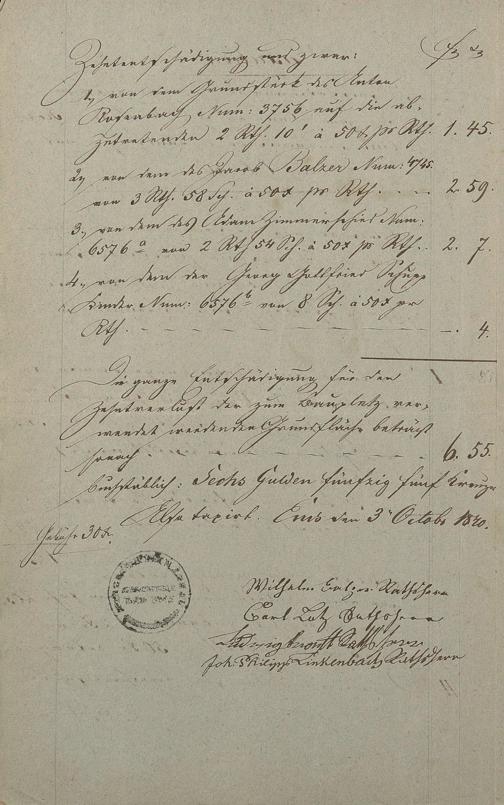 Zehntentschädigung und zwar: f x
1, von dem Grundstück des Anton
Rosenbach Num: 3756 auf die ab-
zutretenden 2 Rth. 10' à 50x pr Rth. 1. 45.
2, von dem des Jacob Balzer Num: 4745.
von 3 Rth. 58 Sch. à 50x pr Rth. . . . . 2. 59.
3, von dem des Adam Zimmerschied Num:
6576 a von 2 Rth 54 Sch. à 50x pr Rth. . . 2. 7.
4, von dem der Georg Gottfried Schupp
Kinder Num: 6576 b von 8 Sch. à 50x pr
Rth. . - - - - - - - - - - - - - . 4.
Die ganze Entschädigung für den
Zehntverlust der zum Bauplatz ver-
wendet werdenden Grundfläche beträgt
sonach . - - - - - - - 6. 55.
buchstäblich: Sechs Gulden fünfzig fünf Kreuzer
Also taxirt. Ems den 3n Octobr
Gebühr 30x.
Wilhelm Rathsherr
Carl Lotz Rathsherr
Ludwig Rathsherr
Joh. Philipp Linkenbach Rathsherr